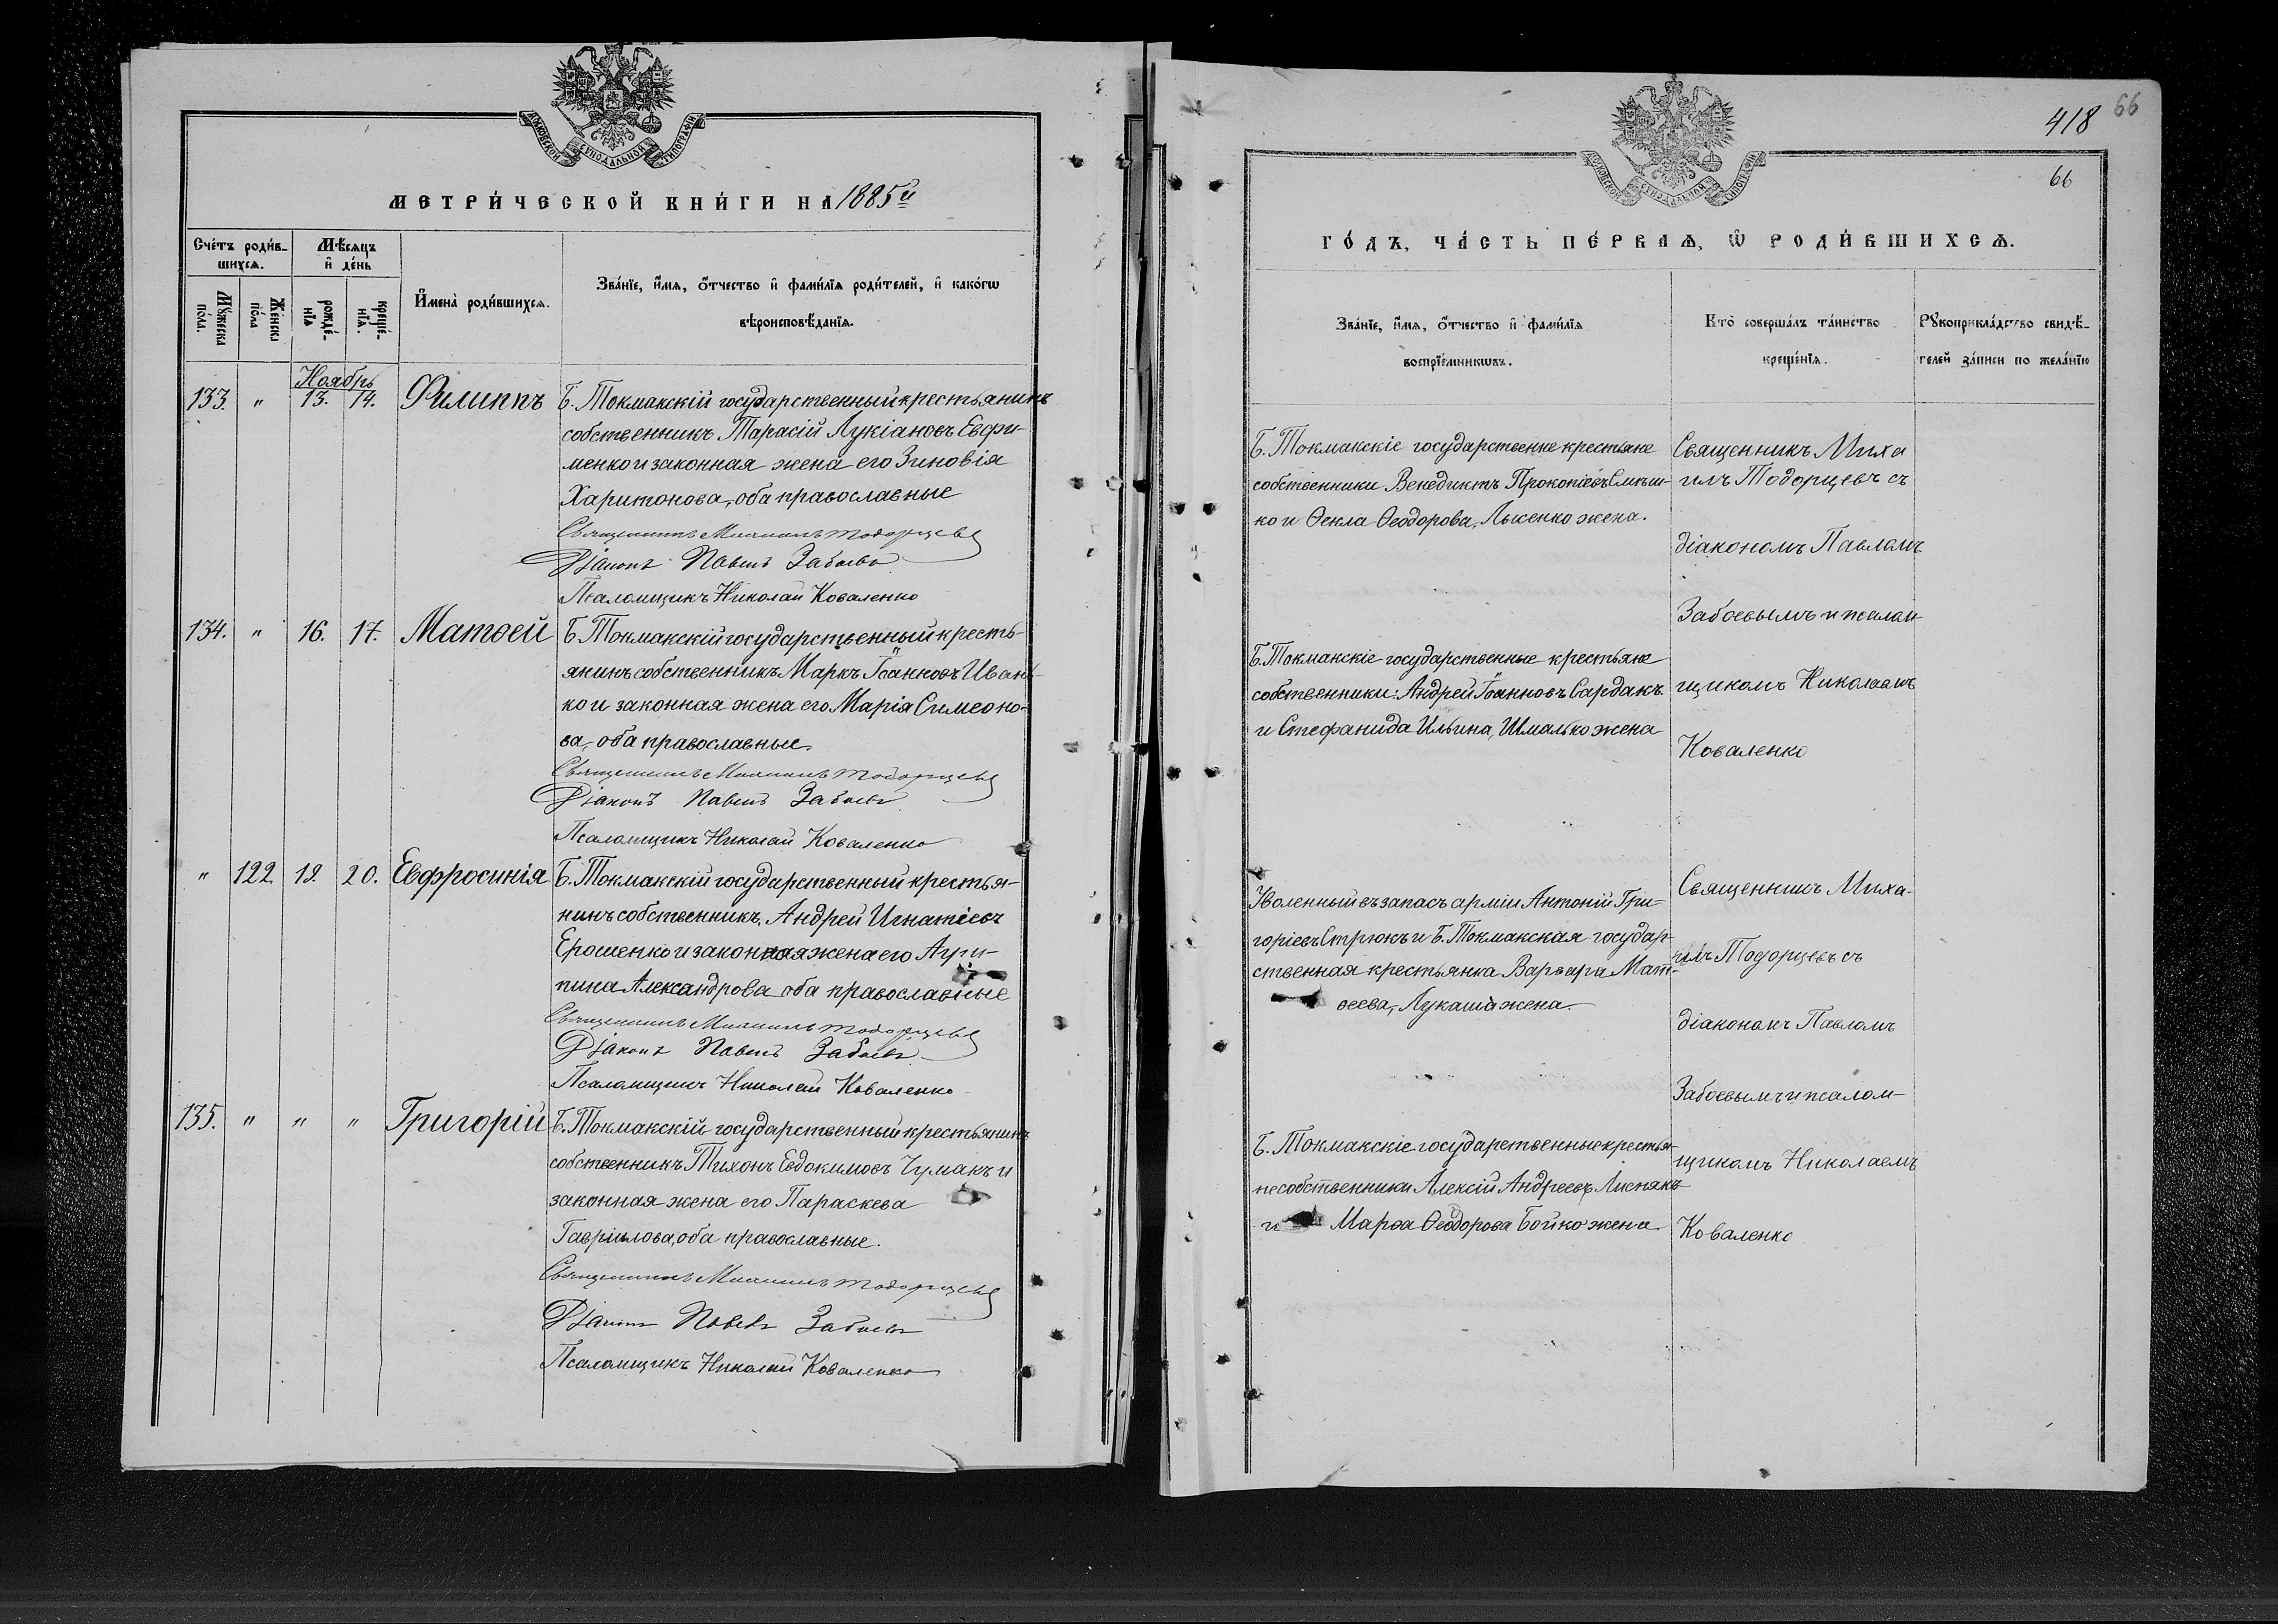 МОСКОВСКОЙ СѴНОДАЛЬНОЙ ТИПОГРАФІИ
МЕТРИ́ЧЕСКОЙ КНИ́ГИ НА 1885й
Сче́тъ роди́в-
шихсѧ.
Мѣ́сяцъ
и҆ де́нь
Мꙋ́жеска
по́ла.
Же́нска
по́ла
рожде́-
нїѧ
креще́-
нїѧ.
И҆мена̀ роди́вшихсѧ.
Зва́нїе, и҆́мѧ, о҆́тчество и҆ фами́лїѧ роди́телей, и҆ како́гѡ
вѣроисповѣ́данїѧ.
Ноябрь
133. " 13. 14. Филиппъ
Б. Токмакскій государственный крестьянинъ
собственникъ Тарасій Лукіановъ Евфи-
менко и законная жена его Зиновія
Харитонова, оба православные
Священникъ Михаилъ Тодорцевъ
Діаконъ Павелъ Забоевъ
Псаломщикъ Николай Коваленко
134. " 16. 17. Матѳей
Б. Токмакскій государственный кресть-
янинъ собственникъ Маркъ Іоанновъ Ивань-
ко и законная жена его Марія Симеоно-
ва, оба православные.
Священникъ Михаилъ Тодорцевъ
Діаконъ Павелъ Забоевъ
Псаломщикъ Николай Коваленко
" 122. 19. 20. Евфросинія
Б. Токмакскій государственный крестья-
нинъ собственникъ, Андрей Игнатіевъ
Ерошенко и законная жена его Агри-
пина Александрова оба православные
Священникъ Михаилъ Тодорцевъ
Діаконъ Павелъ Забоевъ
Псаломщикъ Николай Коваленко
135. " " " Григорій
Б. Токмакскій государственный крестьянинъ
собственникъ Тихонъ Евдокимовъ Чумакъ и
законная жена его Параскева
Гавріилова, оба православные.
Священникъ Михаилъ Тодорцевъ
Діаконъ Павелъ Забоевъ
Псаломщикъ Николай Коваленко
418 66
66
МОСКОВСКОЙ СѴНОДАЛЬНОЙ ТИПОГРАФІИ
ГО́ДЪ, ЧА́СТЬ ПЕ́РВАѦ, Ѡ҆ РОДИ́ВШИХСѦ.
Зва́нїе, и҆́мѧ, о҆́тчество и҆ фами́лїѧ
воспрїе́мникѡвъ.
Кто̀ соверша́лъ та́инство
креще́нїѧ.
Рꙋкоприкла́дство свидѣ́-
телей за́писи по жела́нїю
Б. Токмакскіе государственне крестьяне
собственники Венедиктъ Прокопіевъ
ко и Ѳекла Ѳеодорова, Лысенко жена.
Священникъ Миха
илъ Тодорцевъ съ
діакономъ Павломъ
Забоевымъ и псалом-
щикомъ Николаемъ
Коваленко
Б. Токмакскіе государственные крестьяне
собственники: Андрей Іоанновъ Сардакъ
и Стефанида Ильина, Шмалько жена
Уволенный въ запасъ арміи Антоній Гри-
горіевъ Стрюкъ и Б. Токмакская государ-
ственная крестьянка Варвара Мат-
ѳеева, Лукаша жена.
Священникъ Миха-
илъ Тодорцевъ съ
діакономъ Павломъ
Забоевымъ и псалом-
щикомъ Николаемъ
Коваленко
Б. Токмакскіе государственные крестья-
не собственники Алексій Андреевъ Лиснякъ
и Марѳа Ѳеодорова Бойко жена